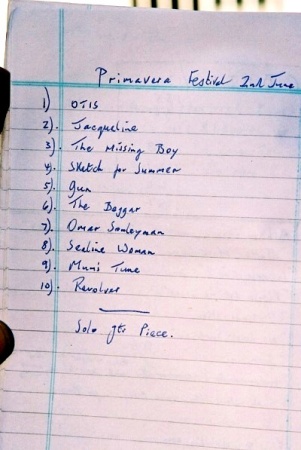 Primavera Festival 2nd June
1) OTIS
2). Jacqueline
3). The Missing Boy
4). Sketch for Summer
5). Gun
6). The Beggar
7). Omar Souleyman
8). Seeline Woman
9). Mum's Tune
10). Revolver
Solo gtr Piece.